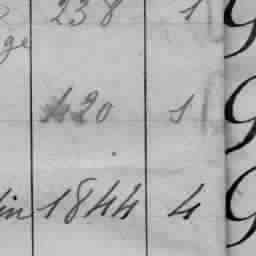 238 1 G
ge
420 1 G
in 1844 4 G